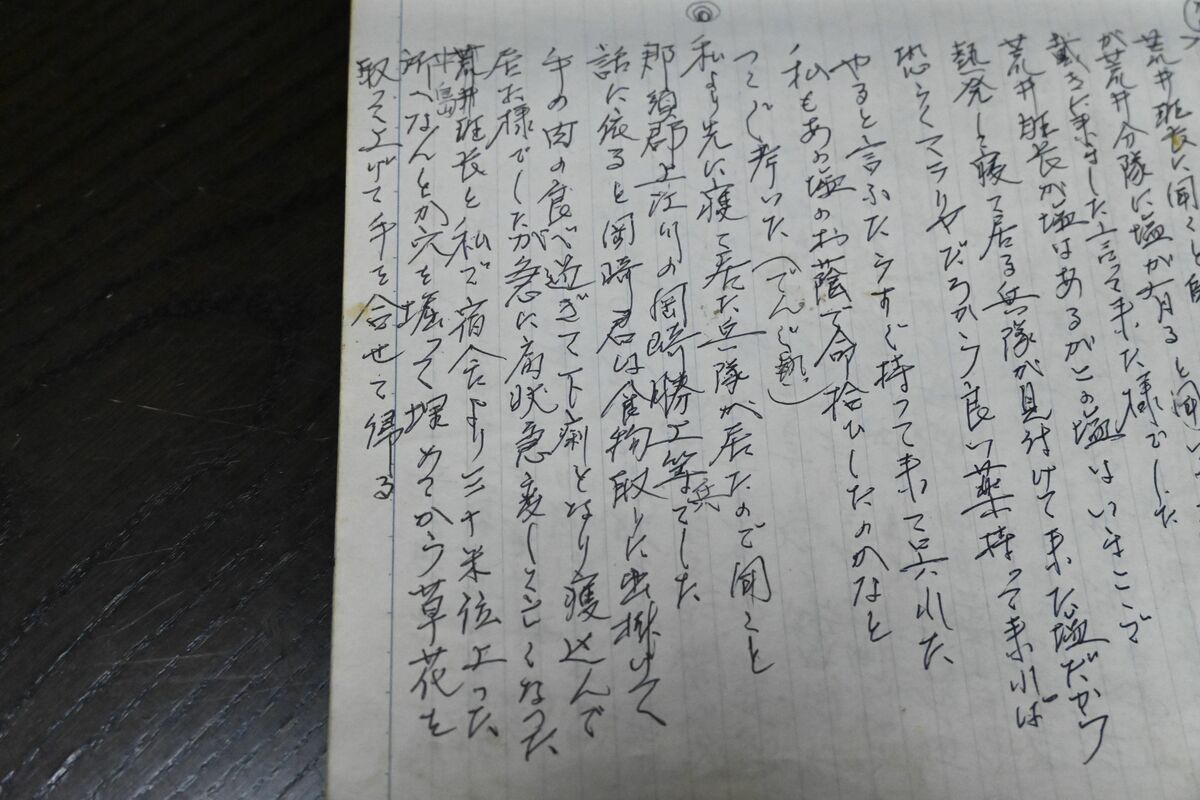 荒井班長に聞くと
が荒井分隊に塩が有ると聞い
戴きに来ました言って来た様でした
荒井班長が塩はあるがこの塩はいまここで
熱発して寝て居る兵隊が見付けて来た塩だから
恐らくマラリヤだろから良い薬持って来れば
やると言ふたらすぐ持って来て呉れた、
私もあの塩のお蔭で命拾ひしたのかなと
つくづく考いた(でんぐ熱)
◎
私より先に寝て居た兵隊が居たので聞くと
那須郡上江川の岡崎勝上等兵でした
話に依ると岡崎君は食物取りに出掛けて
牛の肉の食べ過ぎて下痢となり寝込んで
居た様でしたが急に病状急変して亡くなった
荒井班長と私で宿舎より三十米位上った、
中島
所へなんとか穴を堀って埋めてから草花を
取って上げて手を合せて帰る